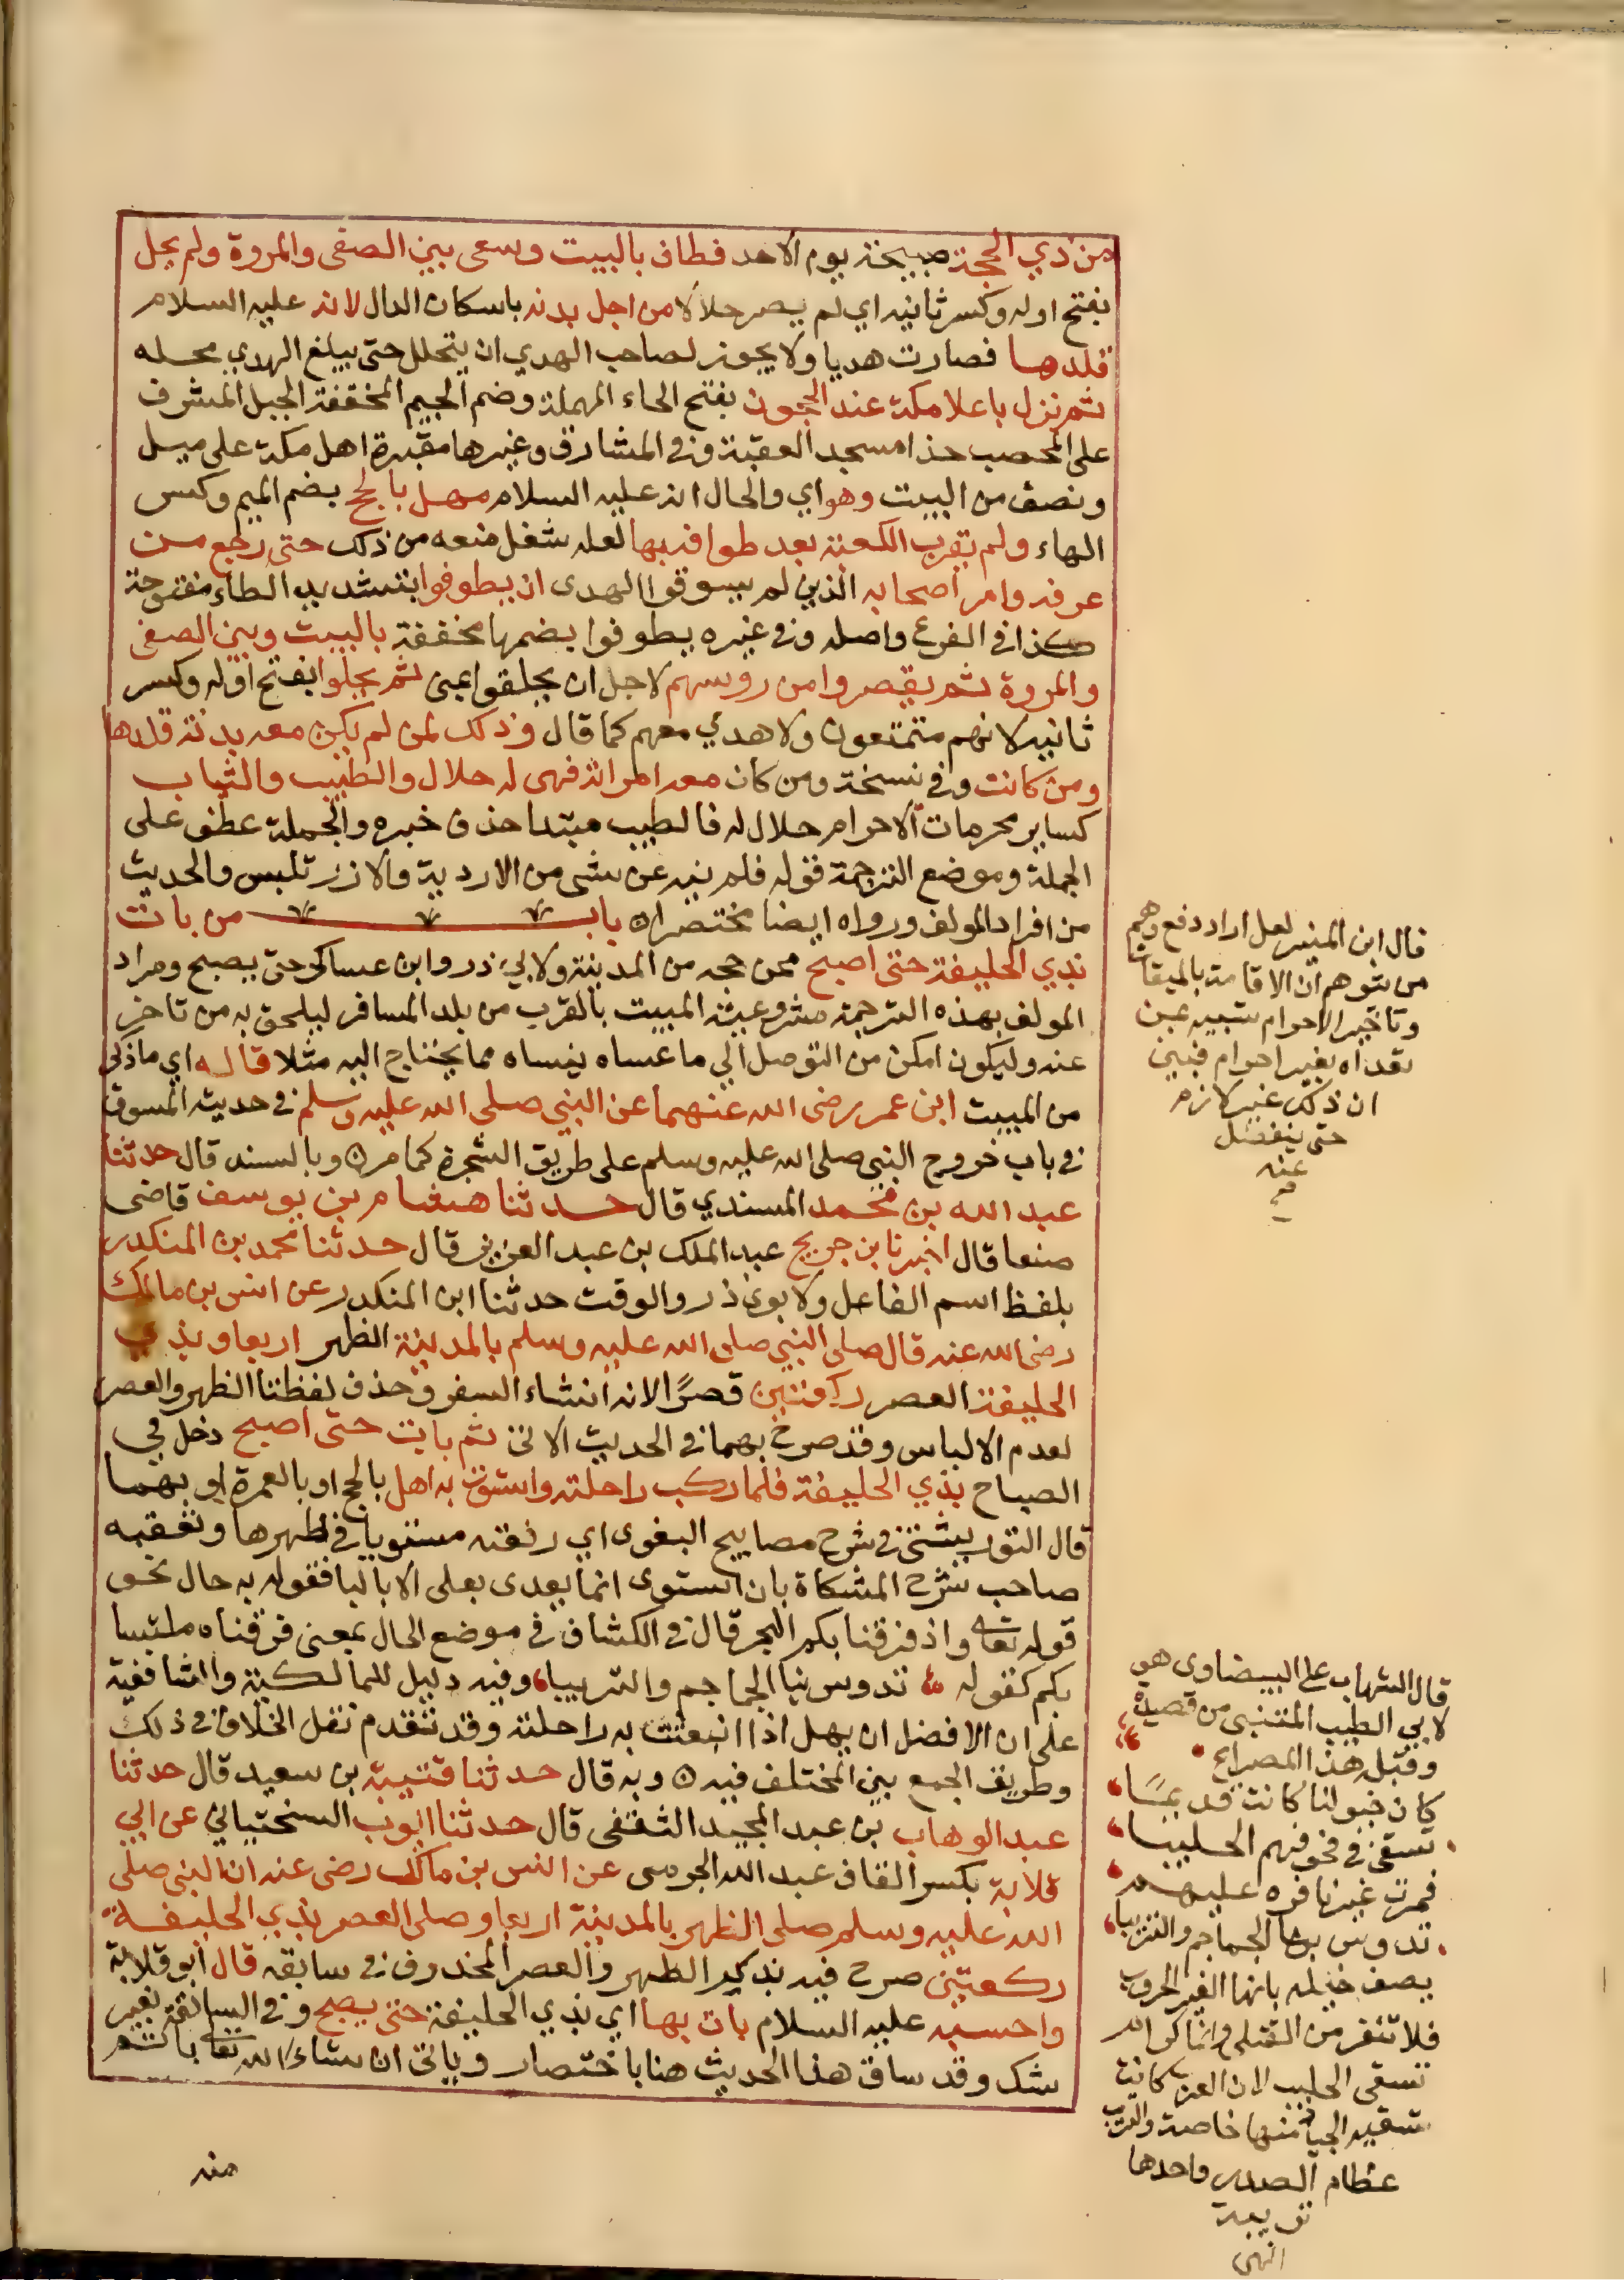 من ذي الحجة صبيحة يوم الاحد فطاف بالبيت وسعى بين الصفى والمروة ولم يحل
بفتح اوله وكسر ثانيه اي لم يصر حلالا من اجل بدنه باسكان الدال لانه عليه السلام
قلدها فصارت هديا ولا يجوز لصاحب الهدي ان يتحلل حتى يبلغ الهدي محله
ثم نزل باعلا مكة عند الحجون بفتح الحاء المهملة وضم الجيم المخففة الجبل المشرف
على المحصب حذا مسجد العقبة وفي المشارق وغيرها مقبرة اهل مكة على ميل
ونصف من البيت وهو اي والحال انه عليه السلام مهل بالحج بضم الميم وكسر
الهاء ولم يقرب الكعبة بعد طوافه بها لعله شغل منعه من ذلك حتى رجع من
عرفه وامر اصحابه الذين لم يسوقوا الهدى ان يطوفوا بتشديد الطاء مفتوحة
كذا في الفرع واصله وفي غيره يطوفوا بضمها مخففة بالبيت وبين الصفى
والمروة ثم يقصروا من روسهم لاجل ان يحلقوا بمنى ثم يحلوا بفتح اوله وكسر
ثانيه لانهم متمتعون ولا هدي معهم كما قال وذلك لمن لم يكن معه بدنة قلدها
ومن كانت وفي نسخة ومن كان معه امراته فهى له حلال والطيب والثياب
كساير محرمات الاحرام حلال له فالطيب مبتدا حذف خبره والجملة عطف على
الجملة وموضع الترجمة قوله فلم ينه عن شى من الاردية والازر تلبس والحديث
من افراد المولف ورواه ايضا مختصرا ه باب من بات
بذي الحليفة حتى اصبح ممن حجه من المدينة ولابي ذر وابن عساكر حتى يصبح ومراد
المولف بهذه الترجمة مشروعية المبيت بالقرب من بلد المسافر ليلحق به من تاخر
عنه وليكون امكن من التوصل الي ما عساه ينساه مما يحتاج اليه مثلا قاله اي ماذكر
من المبيت ابن عمر رضى الله عنهما عن النبي صلى الله عليه وسلم في حديثه المسوق
في باب خروج النبي صلى الله عليه وسلم على طريق الشجرة كما مر ه وبالسند قال حدثنا
عبد الله بن محمد المسندي قال حدثنا هشام بن يوسف قاضى
صنعا قال اخبرنا ابن جريج عبد الملك بن عبد العزيز قال حدثنا محمد بن المنكدر
بلفظ اسم الفاعل ولابوي ذر والوقت حدثنا ابن المنكدر عن انس بن مالك
رضى الله عنه قال صلى النبي صلى الله عليه وسلم بالمدينة الظهر اربعا وبذي
الحليفة العصر ركعتين قصرًا لانه انشاء السفر وحذف لفظتا الظهر والعصر
لعدم الالباس وقد صرح بهما في الحديث الاتي ثم بات حتى اصبح دخل في
الصباح بذي الحليفة فلما ركب راحلته واستوت به اهل بالحج او بالعمرة او بهما
قال التوربشتي في شرح مصابيح البغوى اي رفعته مستويا في ظهرها وتعقبه
صاحب شرح المشكاة بان استوى انما يعدى بعلى لا بالبا فقوله به حال نحو
قوله تعالى واذ فرقنا بكم البحر قال في الكشاف في موضع الحال بمعنى فرقناه ملتبسا
بكم كقوله تدوس بنا الجماجم والتريبا وفيه دليل للمالكية والشافعية
على ان الافضل ان يهل اذا انبعثت به راحلته وقد تقدم نقل الخلاف في ذلك
وطريق الجمع بين المختلف فيه ه وبه قال حدثنا قتيبة بن سعيد قال حدثنا
عبد الوهاب بن عبد المجيد الثقفى قال حدثنا ايوب السختياني عن ابي
قلابة بكسر القاف عبد الله الجرمى عن انس بن مالك رضى عنه ان النبي صلى
الله عليه وسلم صلى الظهر بالمدينة اربعا وصلى العصر بذي الحليفة
ركعتين صرح فيه بذكر الظهر والعصر المحذوف في سابقه قال ابو قلابة
واحسبه عليه السلام بات بها اي بذي الحليفة حتى يصبح وفي السابقة بغير
شك وقد ساق هذا الحديث هنا باختصار وياتي ان شاء الله تعالى باتم
منه
قال ابن المنير لعل اراد دفع وهم
من يتوهم ان الاقامة بالميقات
وتاخير الاحرام شبيه بمن
تعداه بغير احرام فبين
ان ذلك غير لازم
حتى ينفصل
عنه
قال الشهاب على البيضاوى هو
لابي الطيب المتنبى من قصيدة
وقبل هذا المصراع
كان خيولنا كانت قديمًا
تسقى في قحوفهم الحليبا
فمرت غير نافرة عليهم
تدوس بها الجماجم والتريبا
يصف خيله بانها الفت الحروب
فلا تنفر من القتلى وانما ذكر انه
تسقى الحليب لان العرب كانت
تسقيه الجياد منها خاصة والتريب
عظام الصدر واحدها
تريبة
انتهى